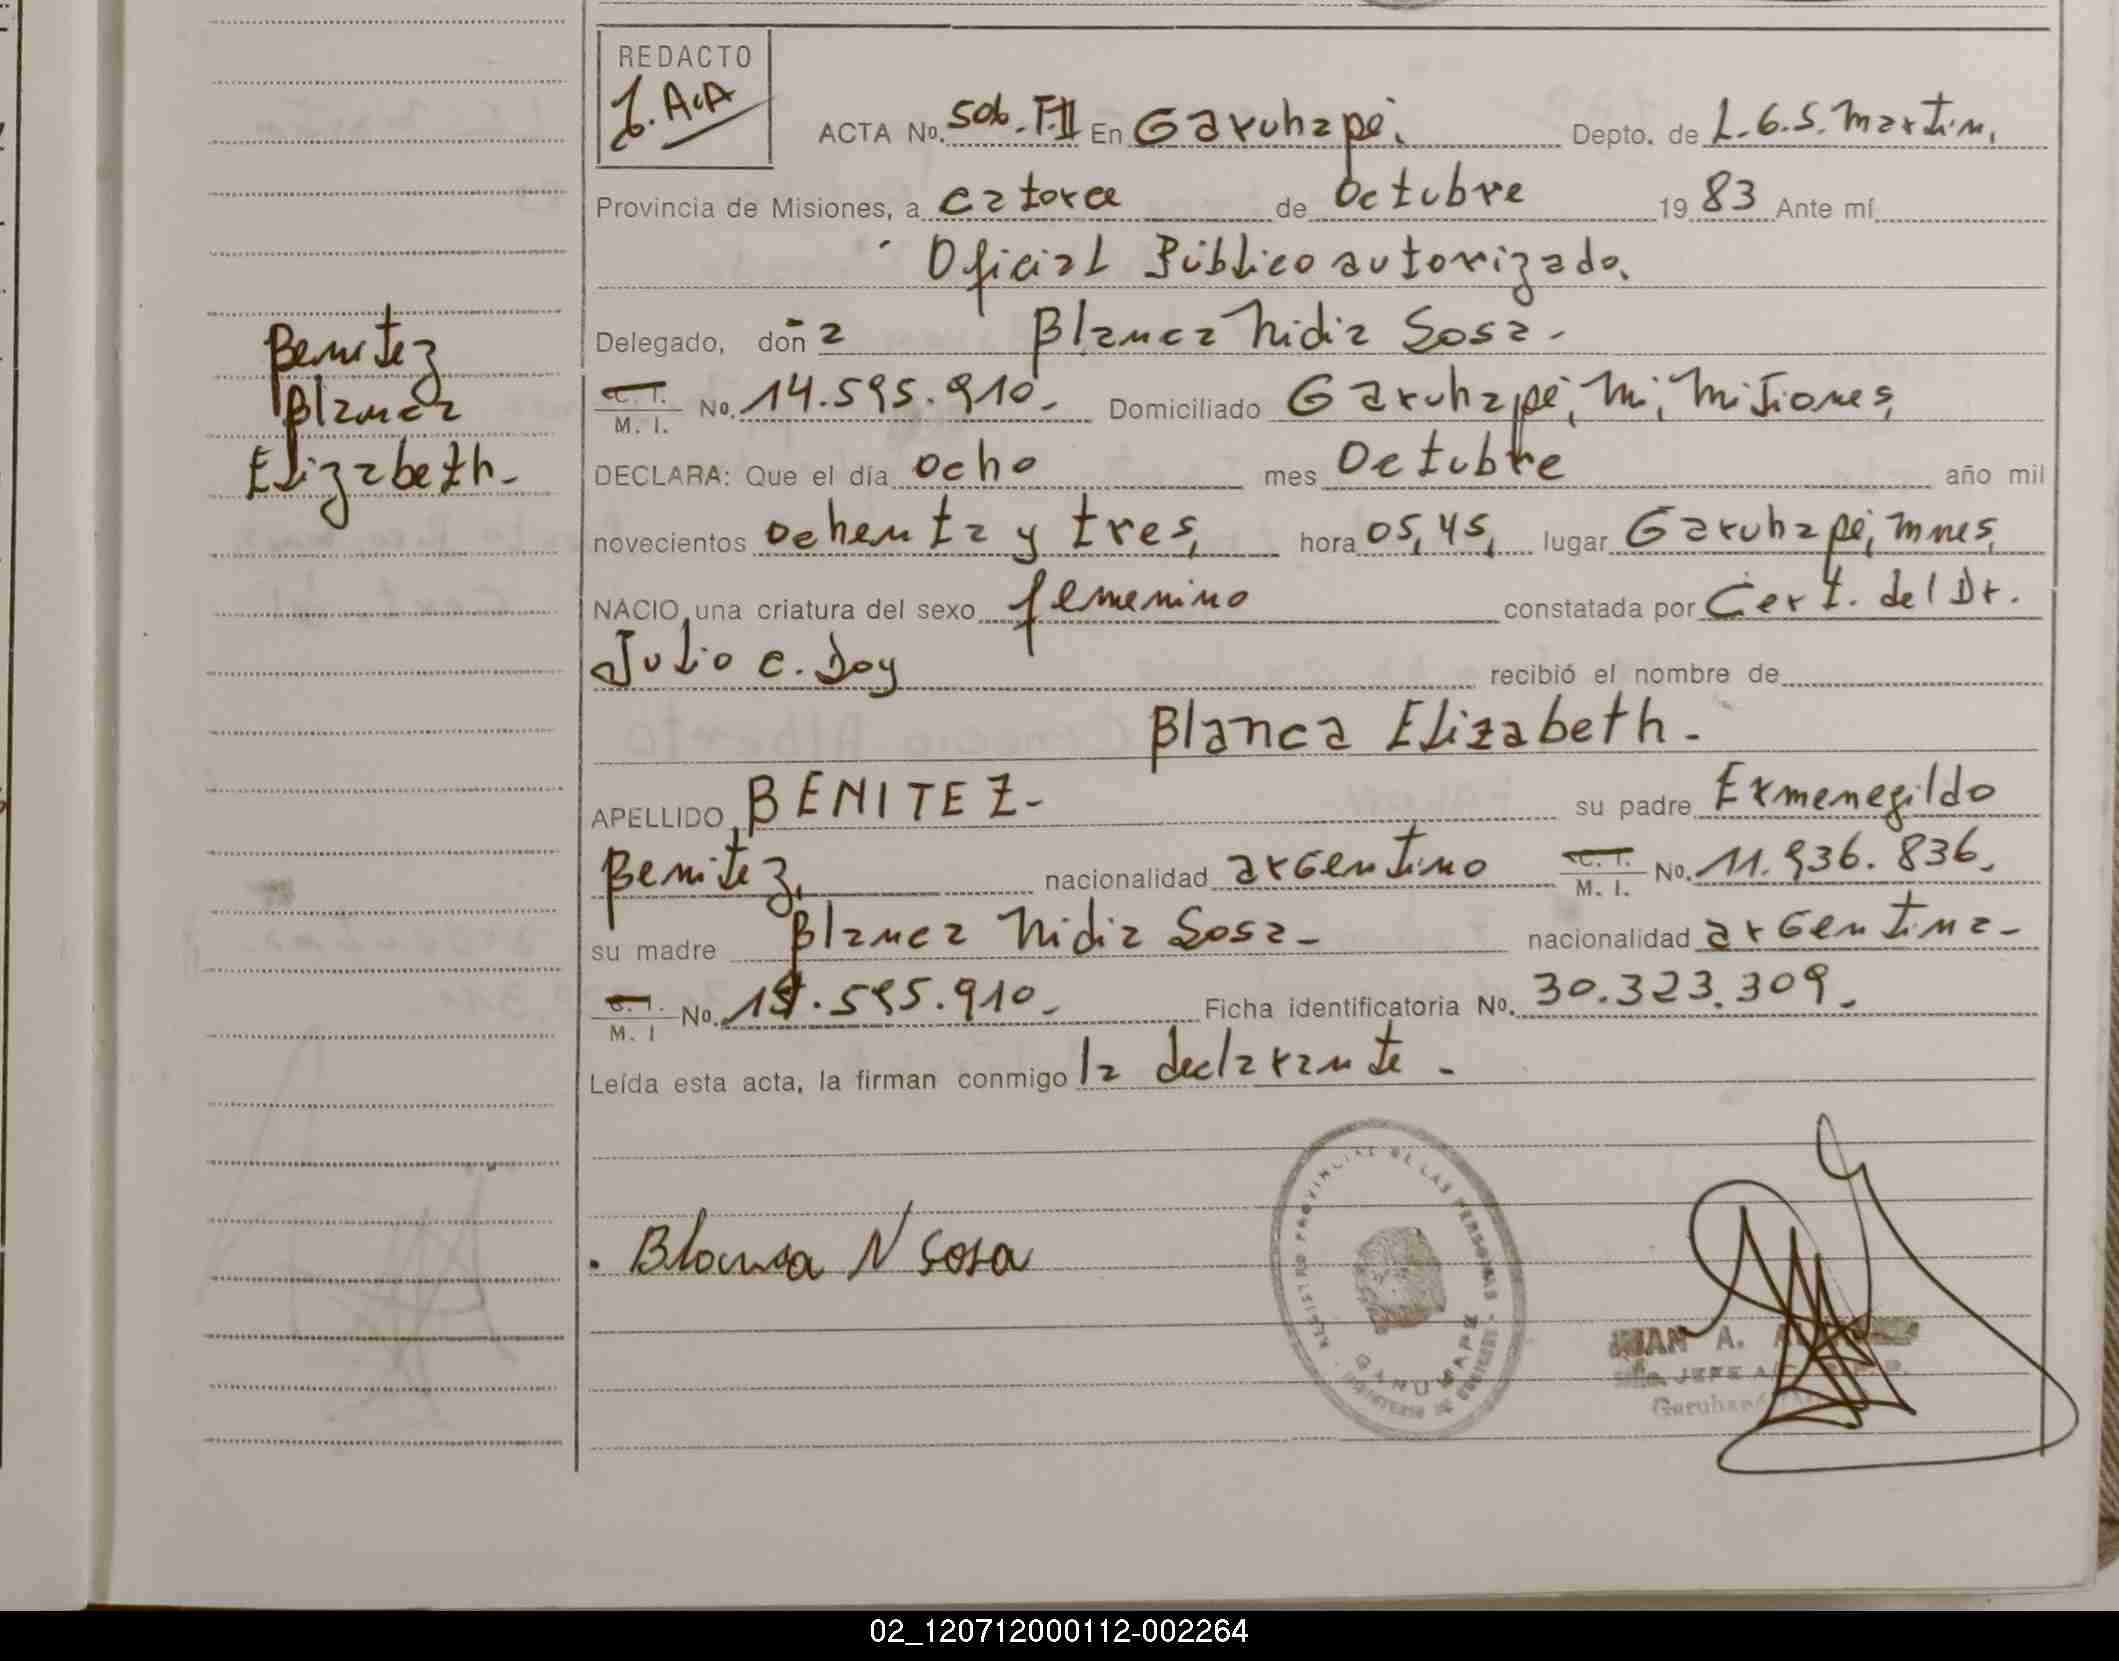 REDACTO
J. A.A
ACTA No. 506. T.II En Garuhapé. Depto. de L.G.S. Martin,
Provincia de Misiones, a catorce de Octubre 1983 Ante mí
Oficial Público autorizado.
Delegado, doña Blanca Nidia Sosa -
C.I. M. I. No. 14.595.910. Domiciliado Garuhapé, Mi, Misiones,
DECLARA: Que el día ocho mes Octubre año mil
novecientos ochenta y tres, hora 05,45, lugar Garuhapé, Mnes,
NACIO una criatura del sexo femenino constatada por Cert. del Dr.
Julio C. Doy recibió el nombre de
Blanca Elizabeth -
APELLIDO BENITEZ - su padre Ermenegildo
Benitez, nacionalidad argentino C.I. M. I. No. 11.936.836.
su madre Blanca Nidia Sosa - nacionalidad argentina -
C.I. M. I No. 14.595.910. Ficha identificatoria No. 30.323.309.
Leída esta acta, la firman conmigo la declarante -
Benitez
Blanca
Elizabeth -
Blanca N Sosa
REGISTRO PROVINCIAL DE LAS PERSONAS
GARUHAPE
MINISTERIO DE GOBIERNO
JUAN A.
JEFE
Garuhapé
02_120712000112-002264